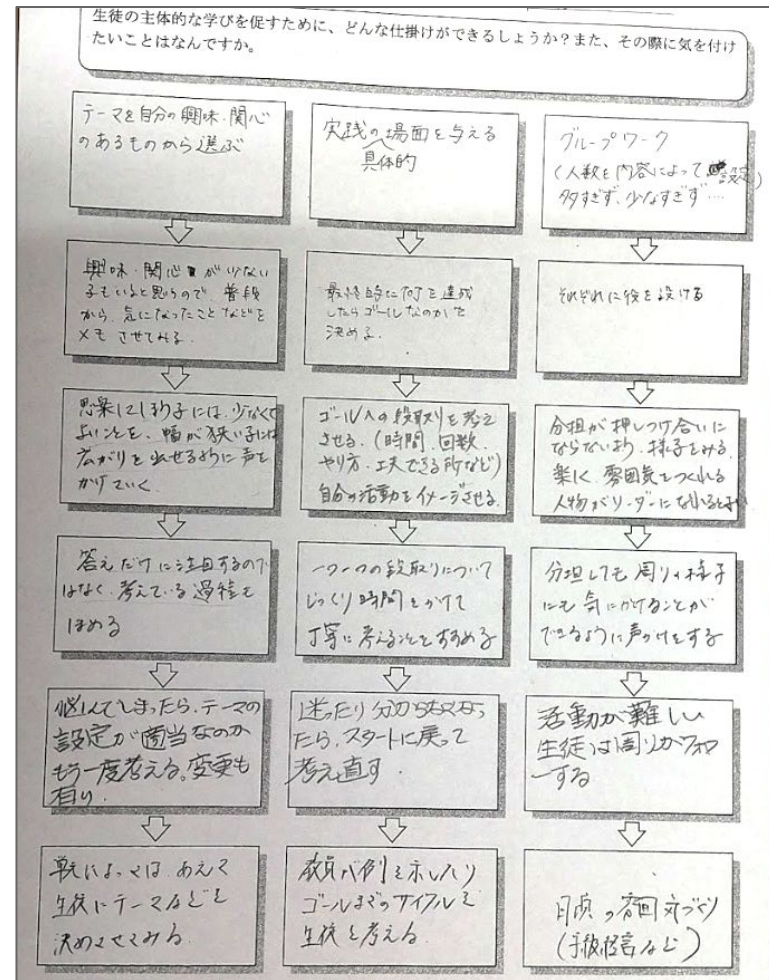 生徒の主体的な学びを促すために、どんな仕掛けができるしょうか？また、その際に気を付け
たいことはなんですか。
テーマを自分の興味・関心
のあるものから選ぶ
興味・関心が少ない
子もいると思うので、普段
から、気になったことなどを
メモさせてみる。
思案にしまう子には、少なくて
よいことを、幅が狭い子には
広がりを出せるように声を
かけていく
答えだけに注目するので
はなく、考えている過程も
ほめる
悩んでしまったら、テーマの
設定が適当なのか
もう一度考える。変更も
有り。
単元によっては、あえて
生徒にテーマなどを
決めさせてみる
実践の場面を与える
具体的
最終的に何を達成
したらゴールなのかを
決める。
ゴールへの段取りを考え
させる。(時間、回数、
やり方、工夫できる所など)
自分の活動をイメージさせる。
一つ一つの段取りについて
じっくり時間をかけて
丁寧に考えることをすすめる
迷ったり分からなくなっ
たら、スタートに戻って
考え直す.
教員が例を示したり
ゴールまでのサイクルを
生徒と考える.
グループワーク
(人数を内容によって設定)
多すぎず、少なすぎず…
それぞれに役を設ける
分担が押しつけ合いに
ならないよう、様子をみる。
楽しく、雰囲気をつくれる
人物がリーダーになれるとよい
分担しても周りの様子
にも気にかけることが
できるように声がけをする
活動が難しい
生徒は周りがフォロー
する
日頃の雰囲気づくり
(学級経営など)